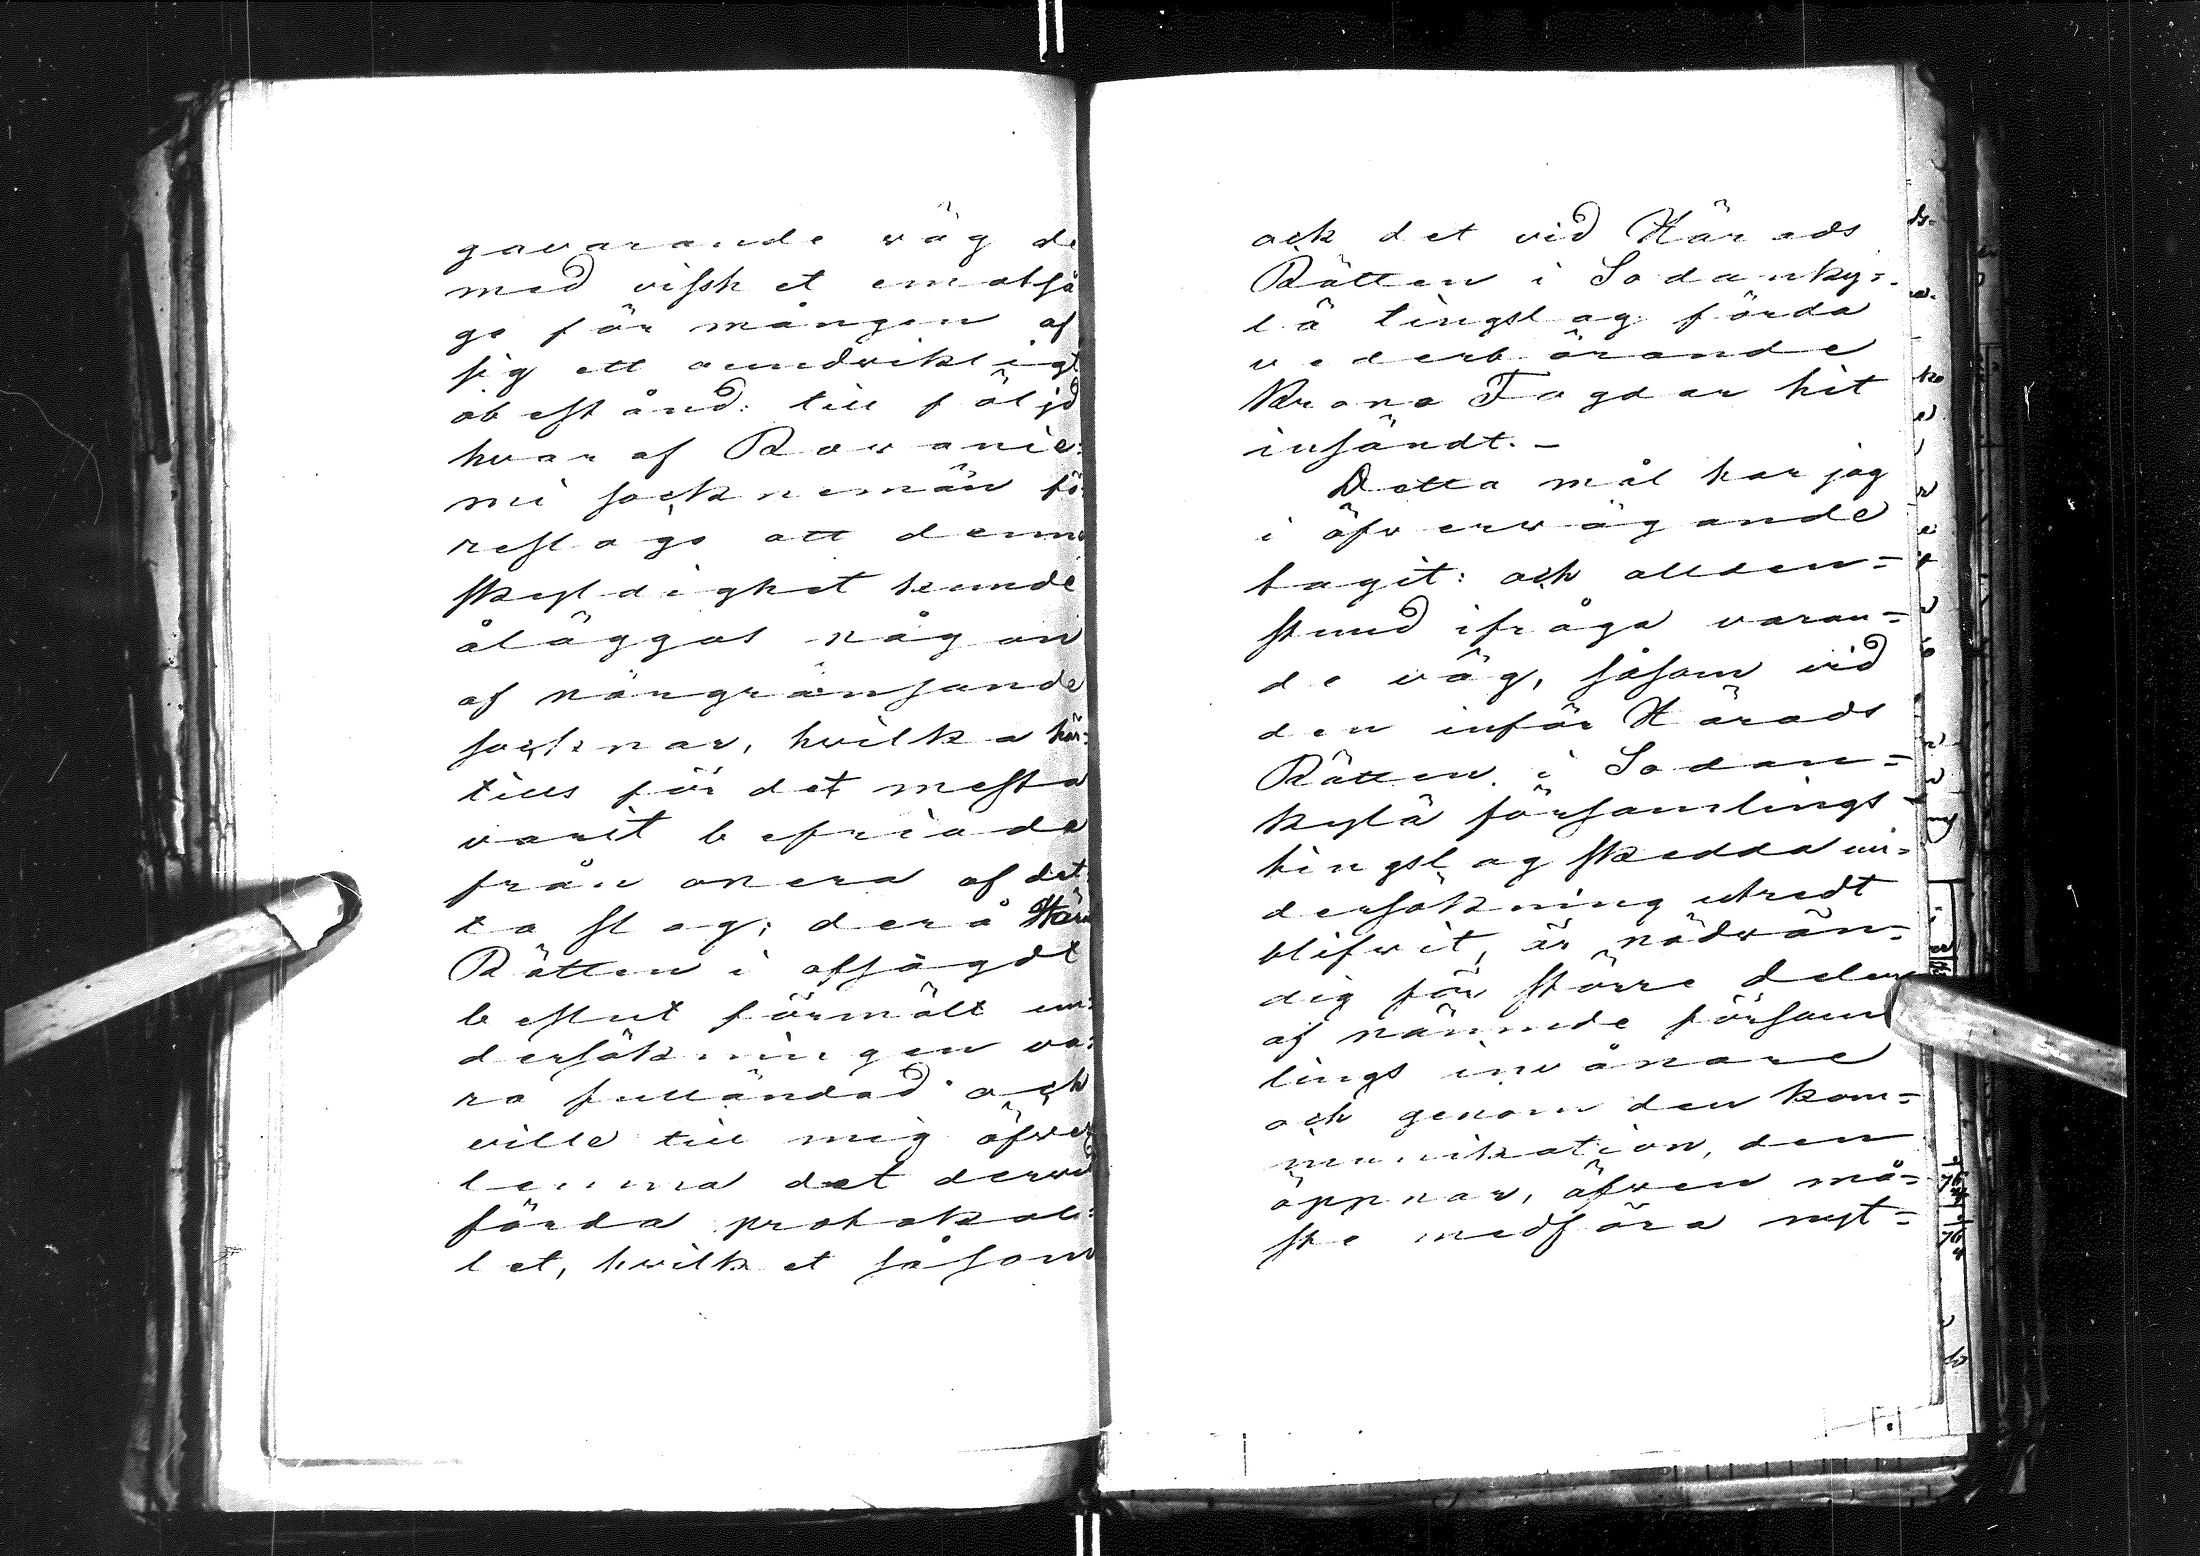 gavarande väg de
med visshet emotså
ge för mången af
sig ett oundvikligt
obestånd: till följd
hvaraf Rovanie=
mi socknemän fö=
reslogo att denna
skyldighet kunde
åläggas någon
af närgränsande
socknar, hvilka här=
tills för det mesta
varit befriade
från onera af det
ta slag; derå Hära
Rätten i afsagdt
beslut förmält un=
dersökningen va=
ra fulländad och
ville till mig öfver
lemna det dervid
förda protokol=
let, hvilket såsom
ock det vid Härads
Rätten i Sodanky=
lä tingslag förda
vederbörande
Krono Fogdar hit
insändt.—
Detta mål har jag
i öfvervägande
tagit: och allden=
stund ifråga varan=
de väg, såsom vid
den inför Härads
Rätten i Sodan=
kylä församlings
tingslag skedda un=
dersökning utredt
blifvit, är nödvän=
dig för större delen
af nämnde försam
lings invånare
och genom den kom=
munikation, den
öppnar, äfven må=
ste medföra nyt=